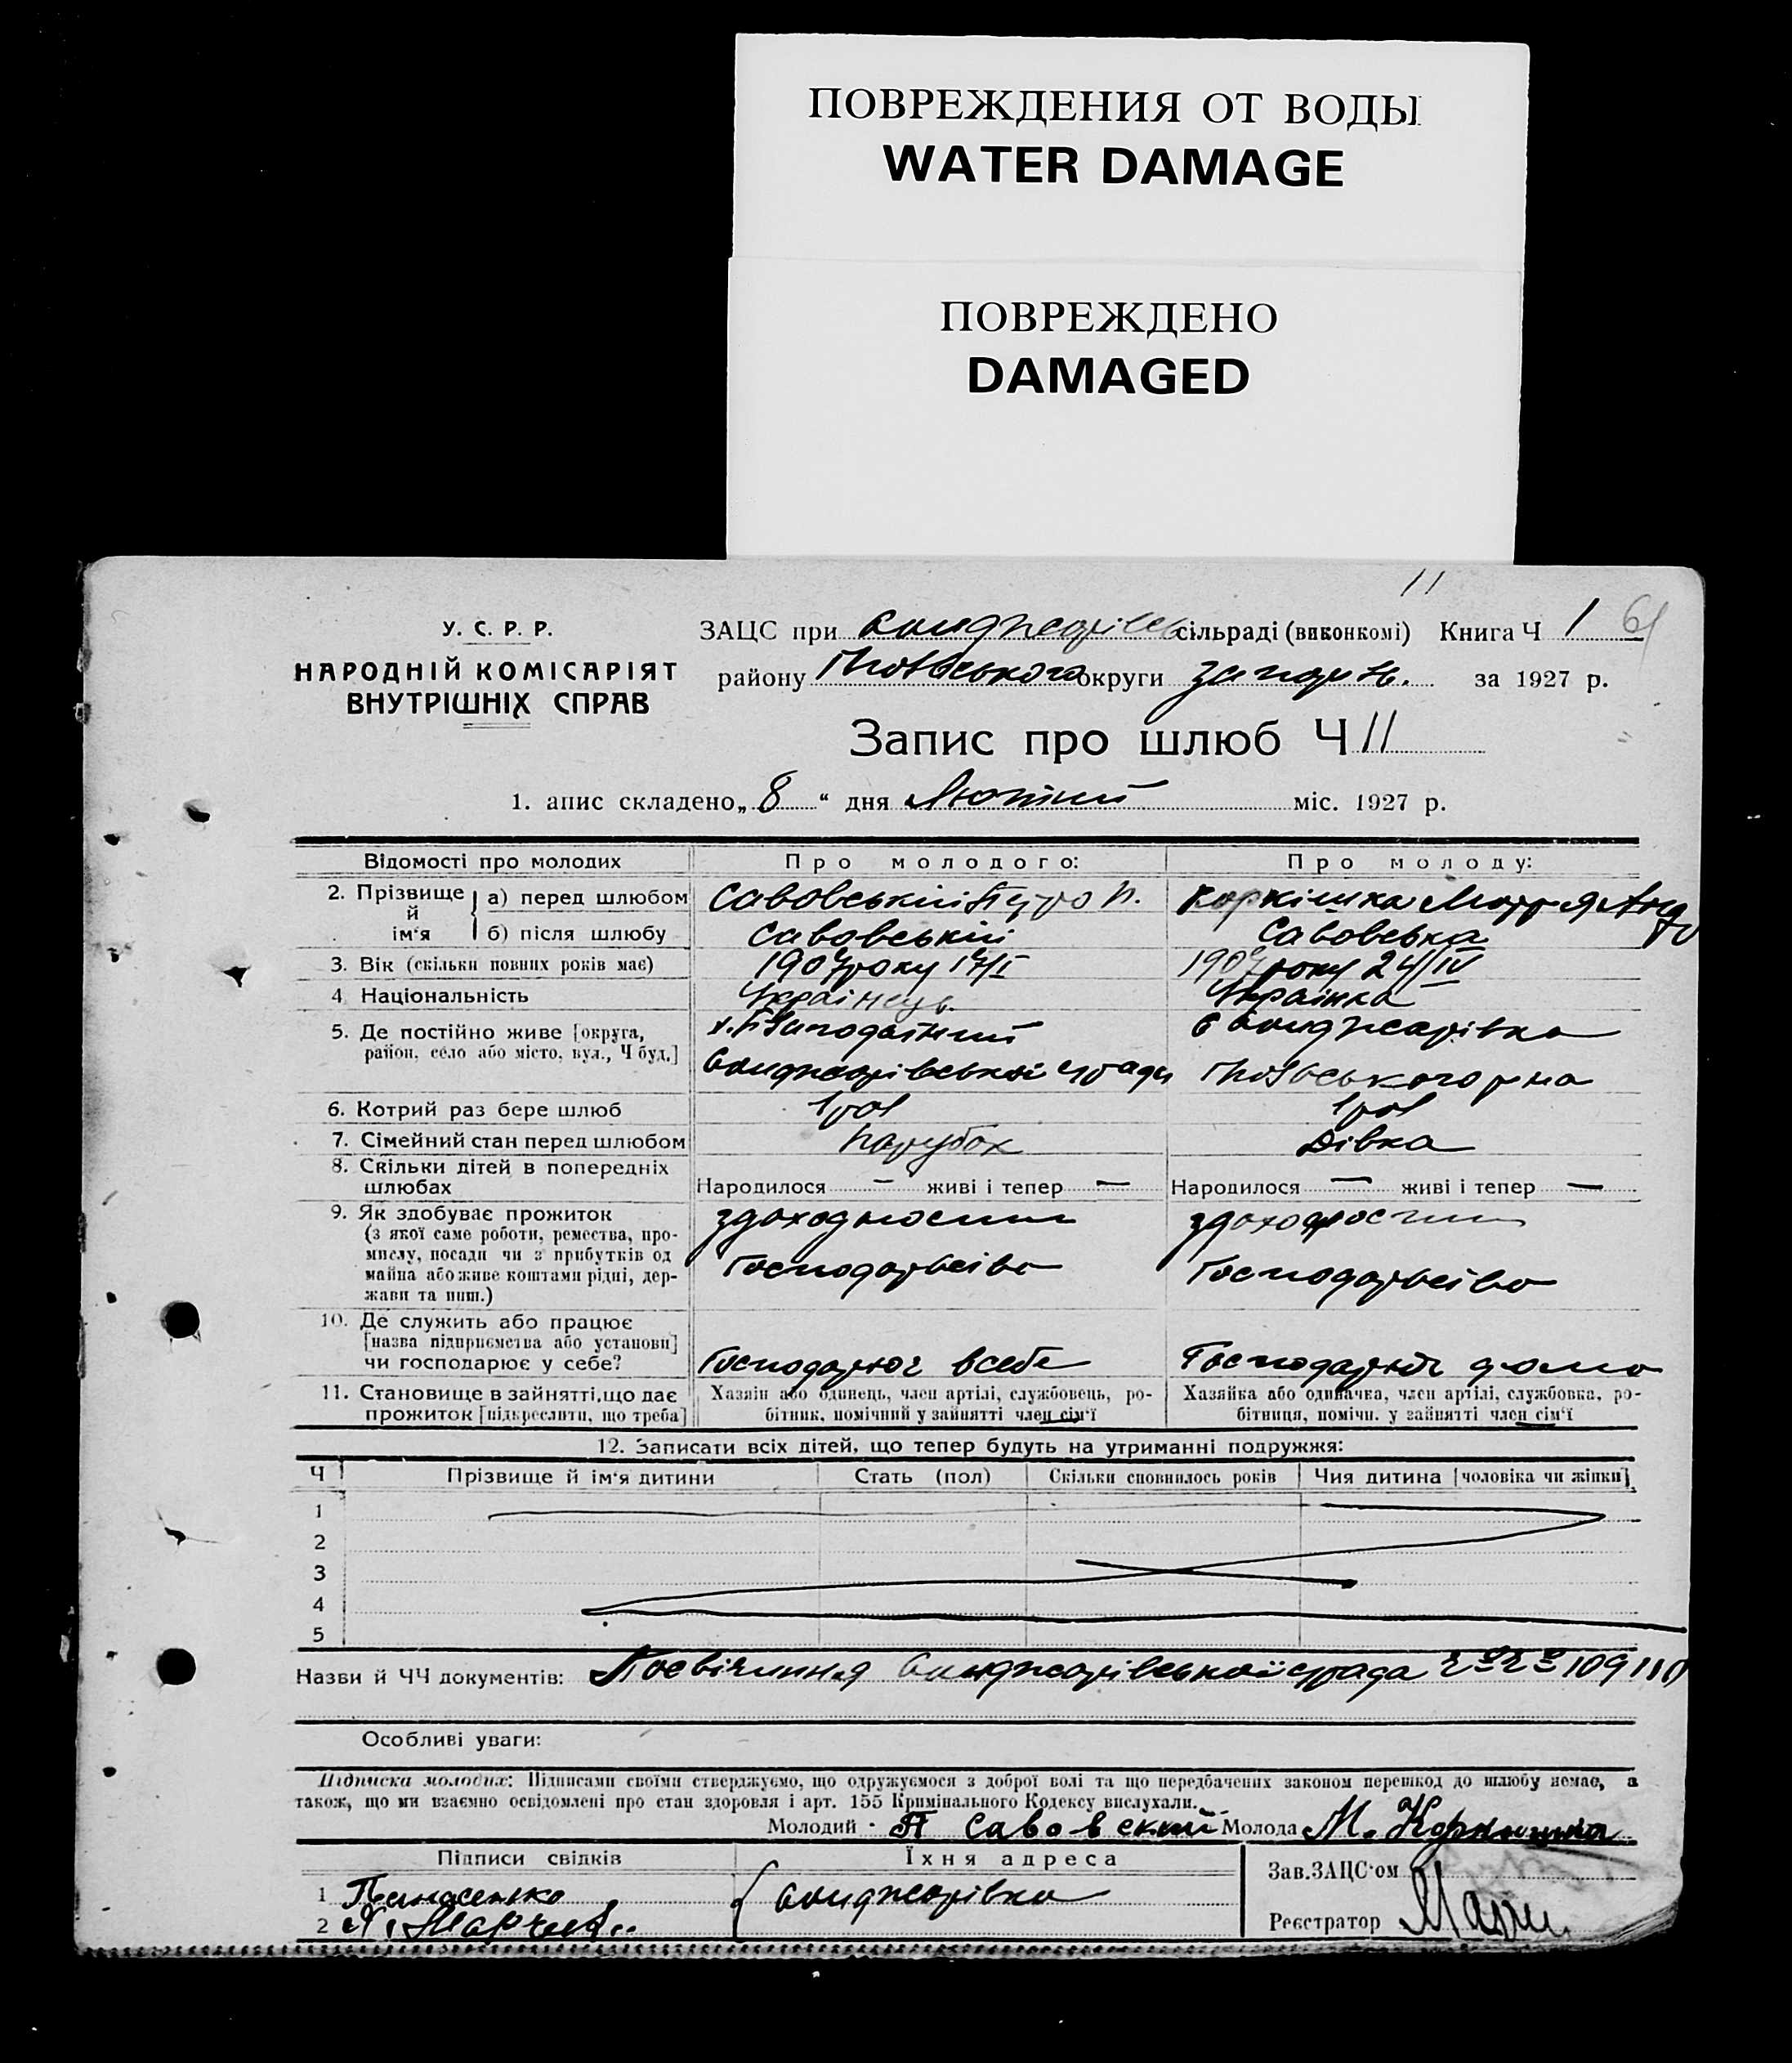 ПОВРЕЖДЕНИЯ ОТ ВОДЫ
WATER DAMAGE
ПОВРЕЖДЕНО
DAMAGED
11
У. С. Р. Р.
НАРОДНІЙ КОМІСАРІЯТ
ВНУТРІШНІХ СПРАВ
ЗАЦС при сільраді (виконкомі) Книга Ч 1 61
району округи за 1927 р.
Запис про шлюб Ч 11
1. апис складено „ 8 “ дня Лютий міс. 1927 р.
Відомості про молодих Про молодого: Про молоду:
2. Прізвище й ім‘я а) перед шлюбом Савовський Петро П. Коркішка Марія Анд
б) після шлюбу Савовський Савовська
3. Вік (скільки повних років має) 1907 року 17/I 1907 року 24/IV
4 Національність Українець Українка
5. Де постійно живе [округа,
район, село або місто, вул., Ч буд.]
6. Котрий раз бере шлюб 1 раз 1 раз
7. Сімейний стан перед шлюбом Парубок Дівка
8. Скільки дітей в попередніх
шлюбах Народилося — живі і тепер — Народилося — живі і тепер —
9. Як здобуває прожиток
(з якої саме роботи, ремества, про-
мислу, посади чи з прибутків од
майна або живе коштами рідні, дер-
жави та инш.)
здоходности здоходности
Господарвство Господарвство
10. Де служить або працює
[назва підприємства або установи]
чи господарює у себе? Господарює всебе Господарює дома
11. Становище в зайнятті, що дає
прожиток [підкреслити, що треба]
Хазяін або одинець, член артілі, службовець, ро-
бітник, помічний у зайнятті член сім‘ї
Хазяйка або одиначка, член артілі, службовка, ро-
бітниця, помічн. у зайнятті член сім‘ї
12. Записати всіх дітей, що тепер будуть на утриманні подружжя:
Ч Прізвище й ім‘я дитини Стать (пол) Скільки сповнилось років Чия дитина [чоловіка чи жінки]
1
2
3
4
5
Назви й ЧЧ документів: 109 110
Особливі уваги:
Підписка молодих: Підписами своїми стверджуємо, що одружуємося з доброї волі та що передбачених законом перешкод до шлюбу немає, а
також, що ми взаємно освідомлені про стан здоровля і арт. 155 Кримінального Кодексу вислухали.
Молодий П Савовский Молода М. Коркишка
Підписи свідків Їхня адреса
1 Панасенко
2
Зав. ЗАЦС‘ом
Реєстратор